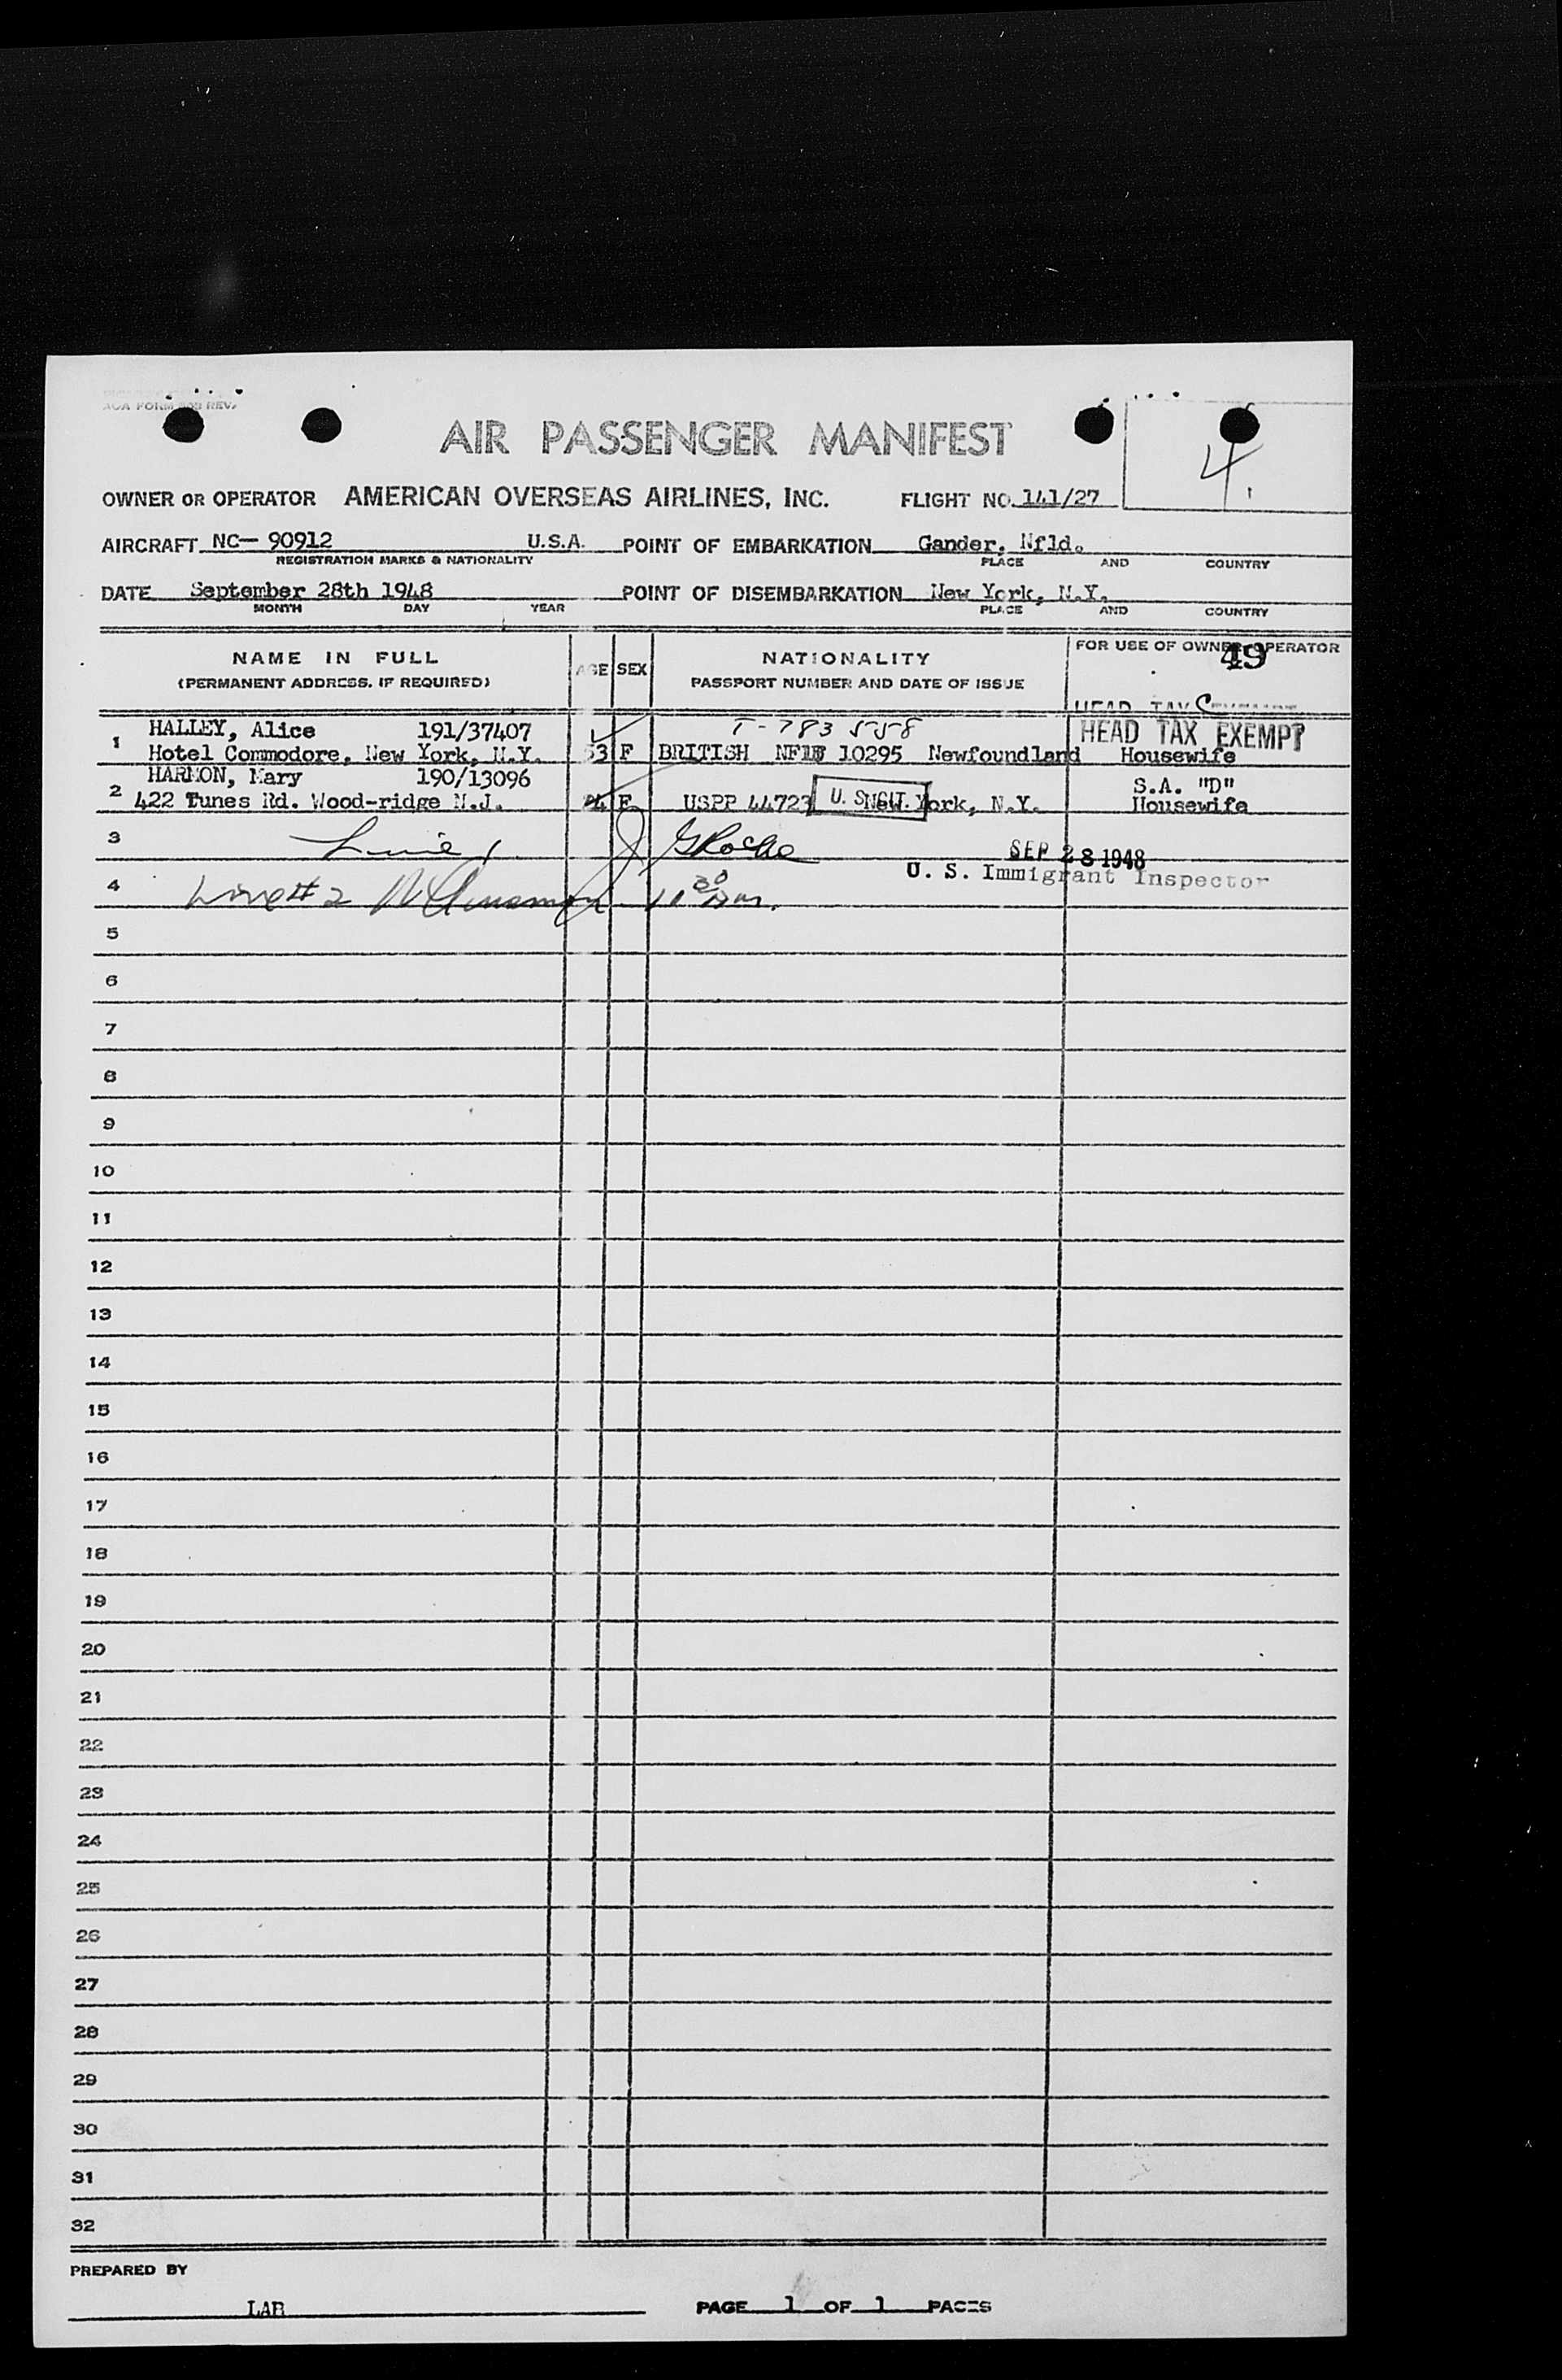 AOA FORM REV.
4
AIR PASSENGER MANIFEST
OWNER OR OPERATOR AMERICAN OVERSEAS AIRLINES, INC. FLIGHT NO. 141/27
AIRCRAFT NC- 90912 U.S.A. POINT OF EMBARKATION Gander, Nfld.
REGISTRATION MARKS & NATIONALITY PLACE AND COUNTRY
DATE September 28th 1948 POINT OF DISEMBARKATION New York, N.Y.
MONTH DAY YEAR PLACE AND COUNTRY
NAME IN FULL AGE SEX NATIONALITY FOR USE OF OWNER OPERATOR
(PERMANENT ADDRESS, IF REQUIRED) PASSPORT NUMBER AND DATE OF ISSUE 49
HEAD TAX
HALLEY, Alice 191/37407 T-783558 HEAD TAX EXEMPT
1 Hotel Commodore, New York, N.Y. 53 F BRITISH 10295 Newfoundland Housewife
HARMON, Mary 190/13096 S.A. "D"
2 422 Tunes Rd. Wood-ridge N.J. 24 F USPP 44723 New York, N.Y. Housewife
U. S. CIT.
3 Line 1 GRoche SEP 28 1948
U. S. Immigrant Inspector
4 Line # 2 10 30
5
6
7
8
9
10
11
12
13
14
15
16
17
18
19
20
21
22
23
24
25
26
27
28
29
30
31
32
PREPARED BY
LAB PAGE 1 OF 1 PAGES